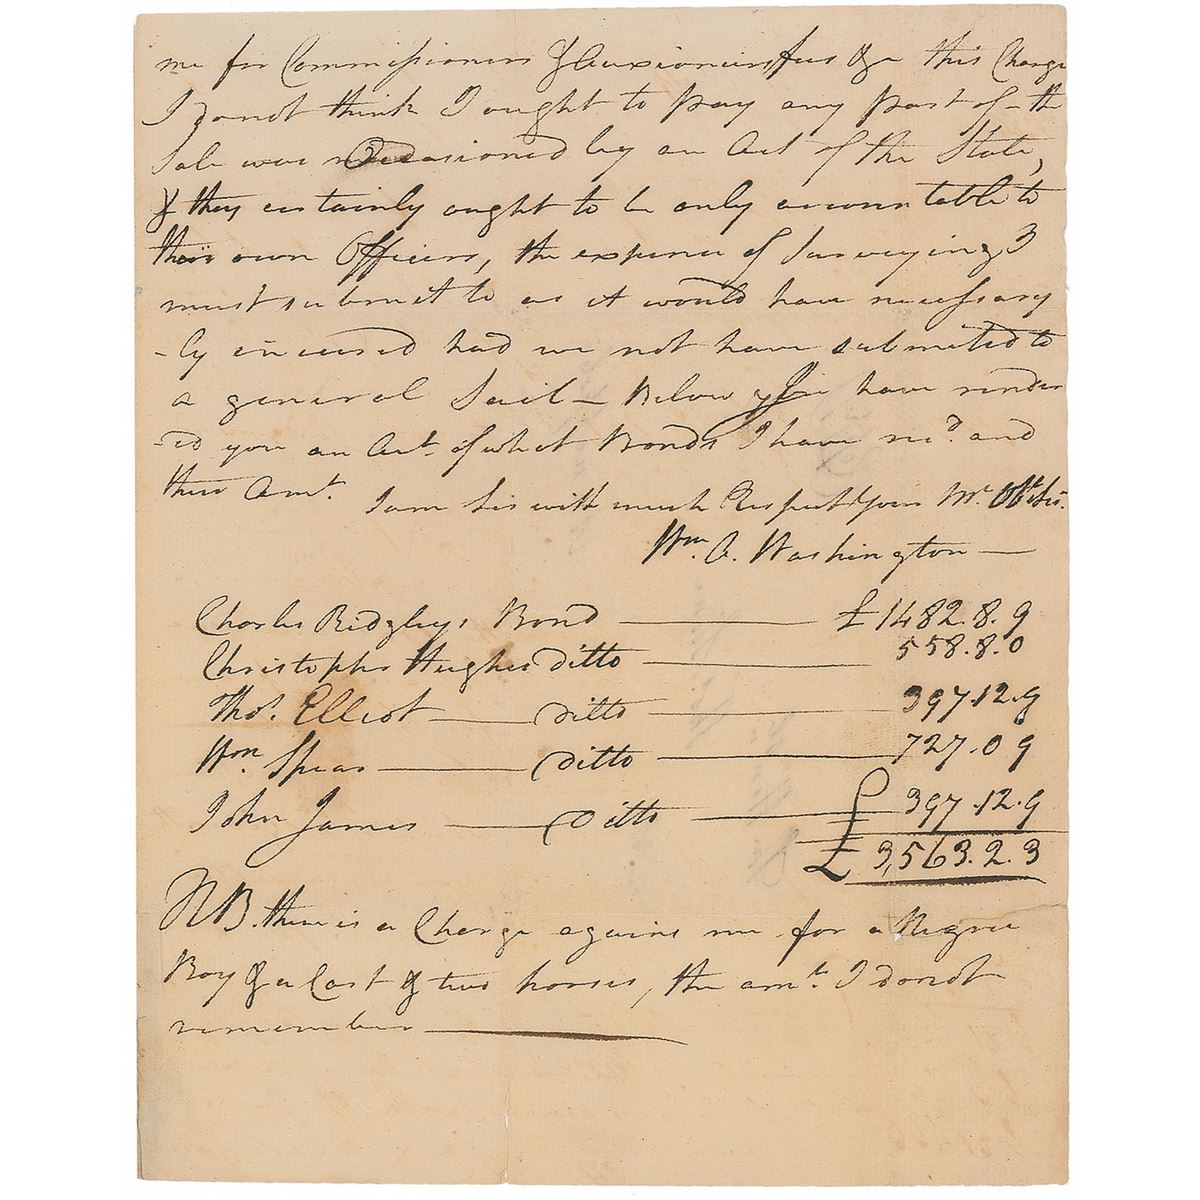 me for Commissioners & Auxioneirs fees &c this Charge
I donot think I ought to pay any part of - the
Sale was Occasioned by an Act of the State,
& they certainly ought to be only accountable to
their own Officers, the expence of Surveying I
must submit to as it would have necessary
-ly incured had we not have submited to
a general Sail - Below I have render
-ed you an Act. of what Bonds I have recd. and
their Amt.
I am Sir with much Respect Your Mt. Obt. Sr.
Wm. A. Washington
Charles Ridgleys Bond £1482.8.9
Christopher Hughes ditto 558.8.0
Thos. Elliot ditto 397.12.9
Wm. Spear ditto 727.0 9
John James Ditto 397.12.9
£3,563.2.3
NB. there is a Charge against me for a Negroe
Boy & a Cart & two horses, the amt. I donot
remember